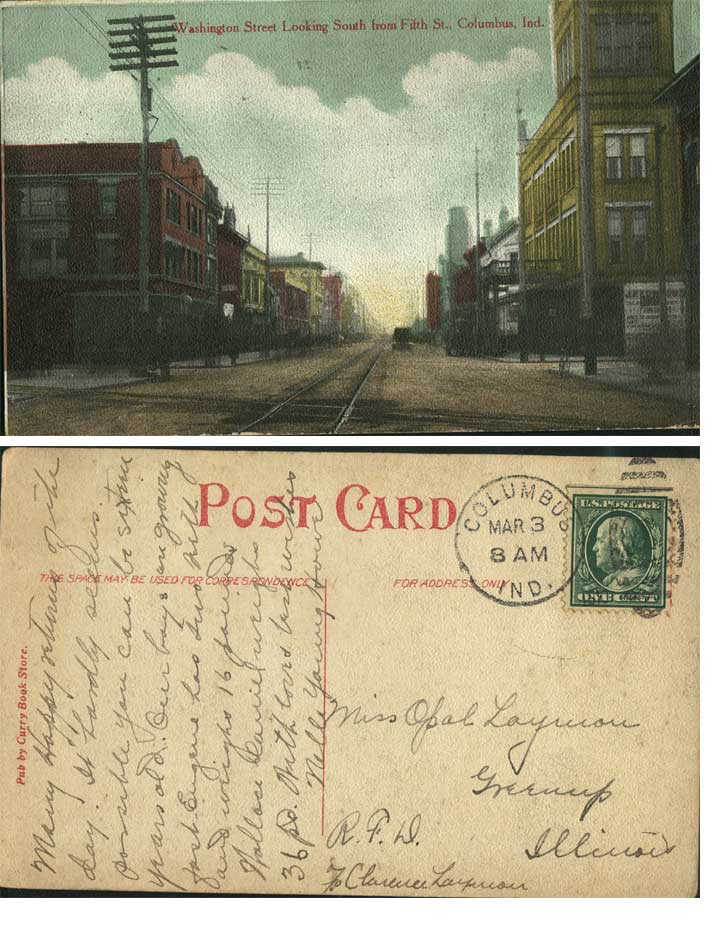 Washington Street Looking South from Fifth St., Columbus, Ind.
POST CARD
THIS SPACE MAY BE USED FOR CORRESPONDENCE
FOR ADDRESS ONLY
COLUMBUS
MAR 3
8 AM
IND.
U.S. POSTAGE
Pub by Curry Book Store.
Many happy returns of the
day. It hardly seems
possible you can be sixteen
years old. Our boys are growing
fast. Eugene has two teeth
and weighs 16 pounds
Wallace Daniel weighs
36 pd. With love & best wishes
Nelle Young Howe
Miss Opal Laymon
Greenup
Illinois
R.F.D.
% Clarence Laymon